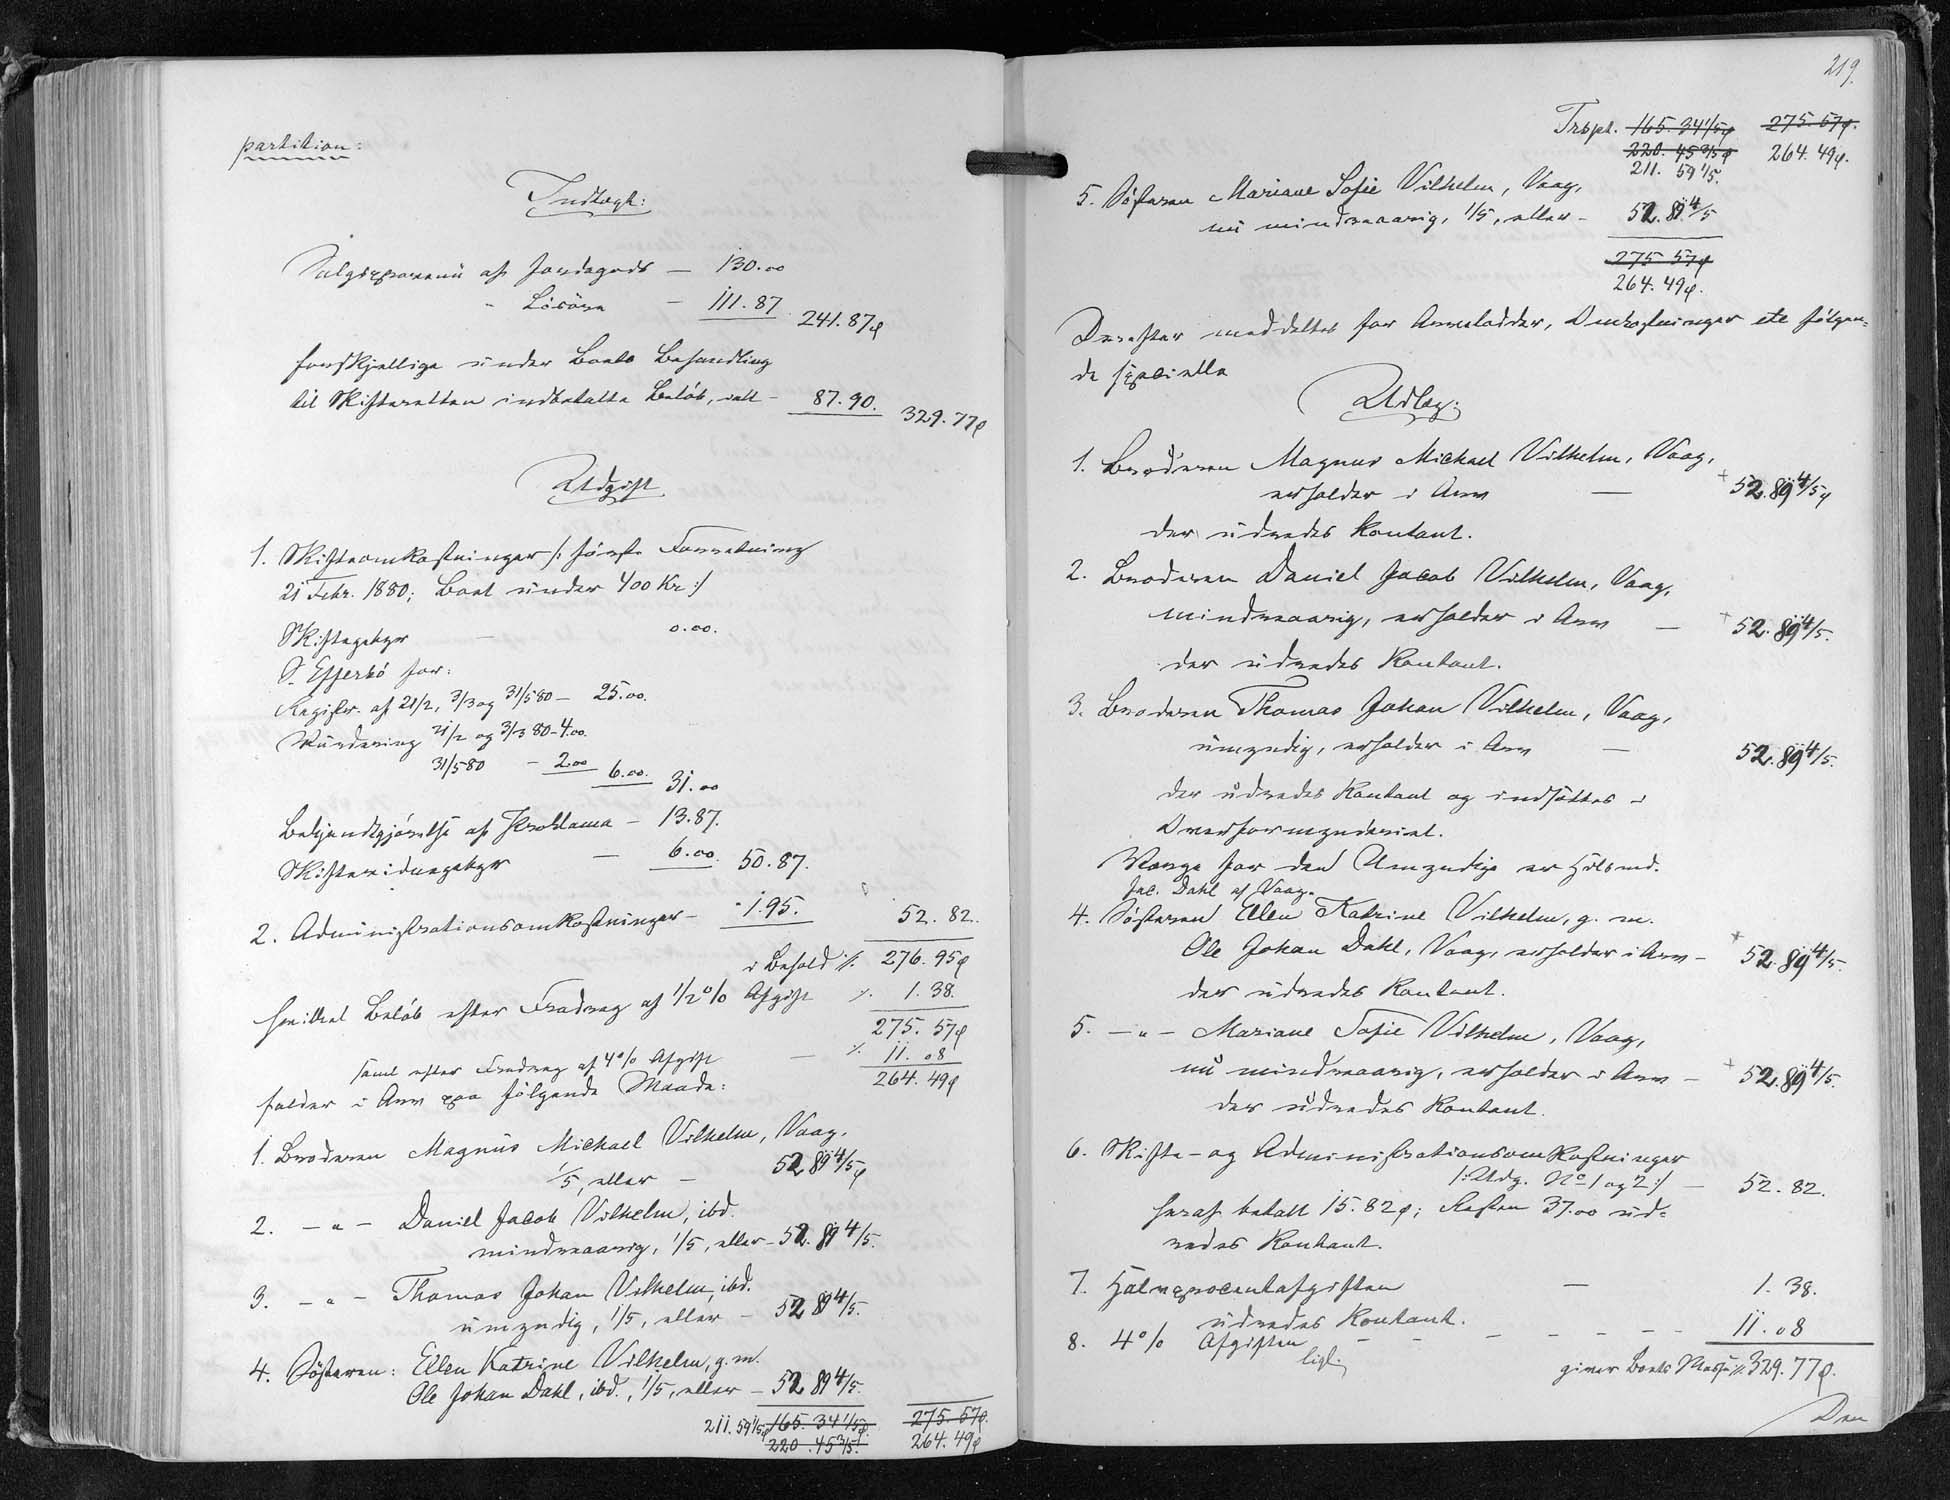 partition:
Indtægt:
Salgsprovenu af Jordegods — 130.00
" Lösöre — 111.87 241.87ø
forskjellige under Boets Behandling
til Skifteretten indbetalte Beløb, ialt — 87.90. 329.77ø
Udgift
1. Skifteomkostninger /: første Forretning
21 Febr. 1880; Boet under 400 Kr :/
Skiftegebyr — 0.00.
S. Effersö for:
Registr. af 21/2, 3/3 og 31/5 80 — 25.00.
Vurdering 21/2 og 3/3 80 - 4.00.
31/5 80 — 2.00 6.00. 31.00
Bekjendtgjörelse af Proklama — 13.87.
Skifteeidnegebyr — 6.00. 50.87.
2. Administrationsomkostninger — 1.95. 52.82.
i Behold ./. 276.95ø
hvilket Beløb efter Fradrag af 1/2 % Afgift ./. 1.38.
275.57ø
samt efter Fradrag af 4% Afgift — ./. 11.08
264.49ø
falder i Arv paa følgende Maade:
1. Broderen Magnus Michael Vilhelm, Vaag,
1/5, eller — 52 89 4/5ø
2. — " — Daniel Jacob Vilhelm, ibd.
mindreaarig, 1/5, eller — 52. 89 4/5.
3. — " — Thomas Johan Vilhelm, ibd.
umyndig, 1/5, eller — 52 89 4/5.
4. Søsteren: Ellen Katrine Vilhelm, g. m.
Ole Johan Dahl, ibd., 1/5, eller — 52 89 4/5.
211. 59 1/5ø 165. 34 1/5ø. 275. 57ø.
220. 45 3/5. 264. 49ø
219.
Trspt. 165. 34 1/5ø 275. 57ø.
220. 45 3/5ø 264. 49ø.
211. 59 1/5.
5. Søsteren Mariane Sofie Vilhelm, Vaag,
nu mindreaarig, 1/5, eller — 52. 89. 4/5
275 57ø
264. 49ø.
Derefter meddeltes for Arvelodder, Omkostninger etc følgen=
de specielle
Udlæg:
1. Broderen Magnus Michael Vilhelm, Vaag,
erholder i Arv — + 52. 89 4/5ø
der udredes kontant.
2. Broderen Daniel Jacob Vilhelm, Vaag,
mindreaarig, erholder i Arv — + 52. 89 4/5.
der udredes kontant.
3. Broderen Thomas Johan Vilhelm, Vaag,
umyndig, erholder i Arv — 52. 89 4/5.
der udredes kontant og indsættes i
Overformynderiet.
Værge for den Umyndige er Husmd.
Jac. Dahl af Vaag.
4. Søsteren Ellen Katrine Vilhelm, g. m.
Ole Johan Dahl, Vaag, erholder i Arv — + 52. 89 4/5.
der udredes kontant.
5. — " — Mariane Sofie Vilhelm, Vaag,
nu mindreaarig, erholder i Arv — + 52. 89 4/5.
der udredes kontant.
6. Skifte- og Administrationsomkostninger
/: Udg. No 1 og 2 :/ — 52. 82.
heraf betalt 15.82ø; Resten 37.00 ud=
redes kontant.
7. Halvprocentafgiften — 1. 38.
udredes kontant.
8. 4% Afgiften — — — — — — 11. 08
ligl.
giver Boets Masse ./. 329. 77ø.
Den